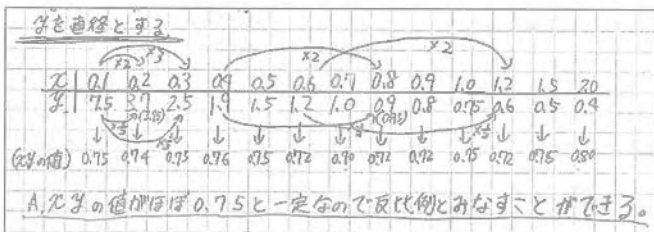 yを直径とする
×2 ×3 ×2 ×2
x 0.1 0.2 0.3 0.4 0.5 0.6 0.7 0.8 0.9 1.0 1.2 1.5 2.0
y 7.5 3.7 2.5 1.9 1.5 1.2 1.0 0.9 0.8 0.75 0.6 0.5 0.4
×1/2 (3.75) ×1/3 ×1/2 (0.95) ×1/2
↓ ↓ ↓ ↓ ↓ ↓ ↓ ↓ ↓ ↓ ↓ ↓ ↓
(xyの値) 0.75 0.74 0.75 0.76 0.75 0.72 0.70 0.72 0.72 0.75 0.72 0.75 0.80
A. xyの値がほぼ0.75と一定なので反比例とみなすことができる。